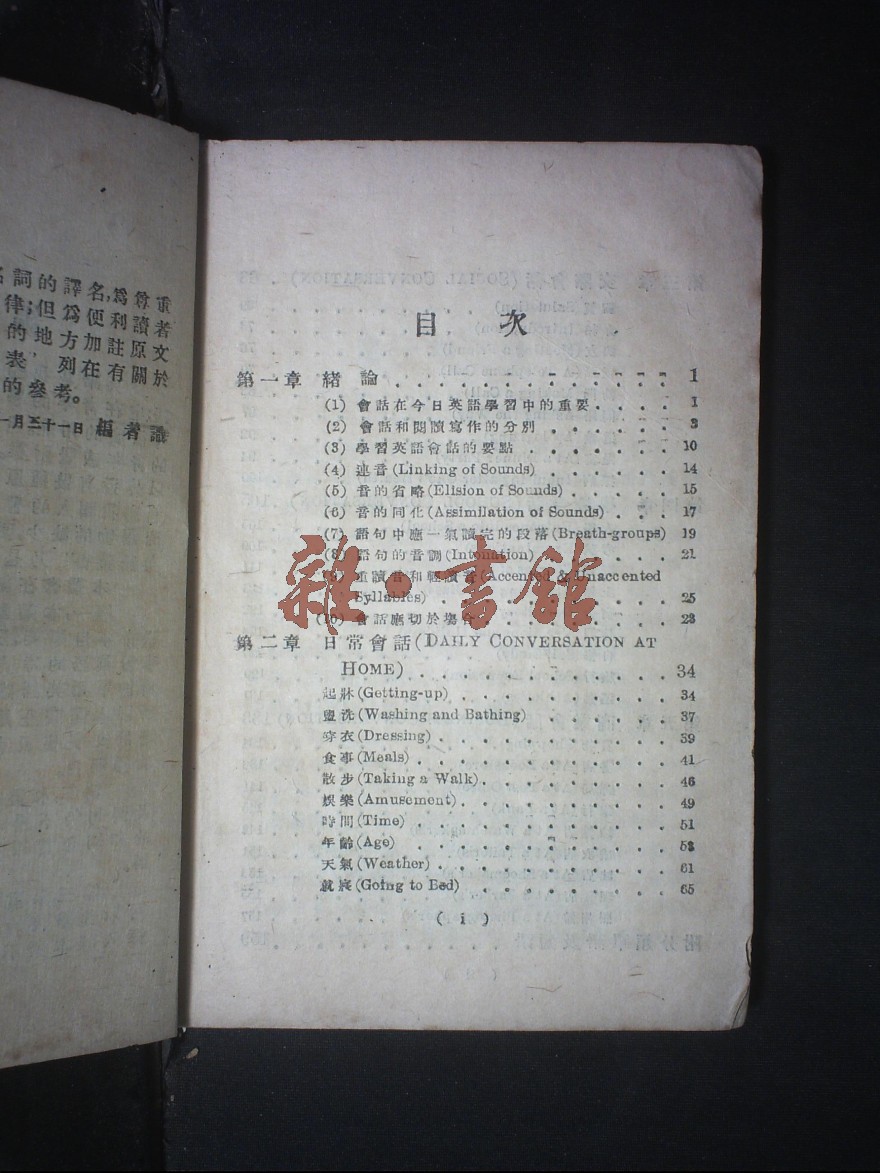 名詞的譯名,爲尊重
律;但爲便利讀者
的地方加註原文
表 列在有關於
的參考。
一月三十一日 編著識
目 次
第一章 緒論 1
(1) 會話在今日英語學習中的重要 1
(2) 會話和閱讀寫作的分別 3
(3) 學習英語會話的要點 10
(4) 連音(Linking of Sounds) 14
(5) 音的省略(Elision of Sounds) 15
(6) 音的同化(Assimilation of Sounds) 17
(7) 語句中應一氣讀完的段落(Breath-groups) 19
(8) 語句的音調(Intonation) 21
(9) 重讀音和輕讀音(Accented & Unaccented
Syllables) 25
(10) 會話應切於場合 28
第二章 日常會話(DAILY CONVERSATION AT
HOME) 34
起牀(Getting-up) 34
盥洗(Washing and Bathing) 37
穿衣(Dressing) 39
食事(Meals) 41
散步(Taking a Walk) 46
娛樂(Amusement) 49
時間(Time) 51
年齡(Age) 58
天氣(Weather) 61
就寢(Going to Bed) 65
( i )
雜·書館